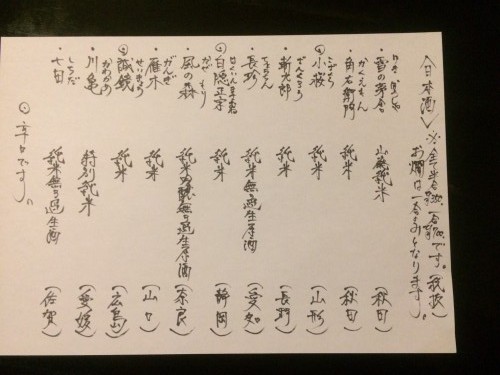 〈日本酒〉※全半合 一合 です。(税抜)
お燗は一合のみとなります。
ゆき ぼうしゃ
・雪の茅舎 山廃純米 (秋田)
かくえもん
・角右衛門 純米 (秋田)
こざくら
◎小桜 純米 (山形)
ざんくろう
・斬九郎 純米 (長野)
ちょうちん
・長珍 純米無ろ過生原酒 (愛知)
はくいんまさむね
◎白隠正宗 純米 (静岡)
かぜ もり
・風の森 純米吟醸無ろ過生原酒 (奈良)
がんぎ
・雁木 純米 (山口)
せいきょう
◎誠鏡 純米 (広島)
かわかめ
・川亀 特別純米 (愛媛)
しちだ
・七田 純米無ろ過生酒 (佐賀)
◎辛口です。